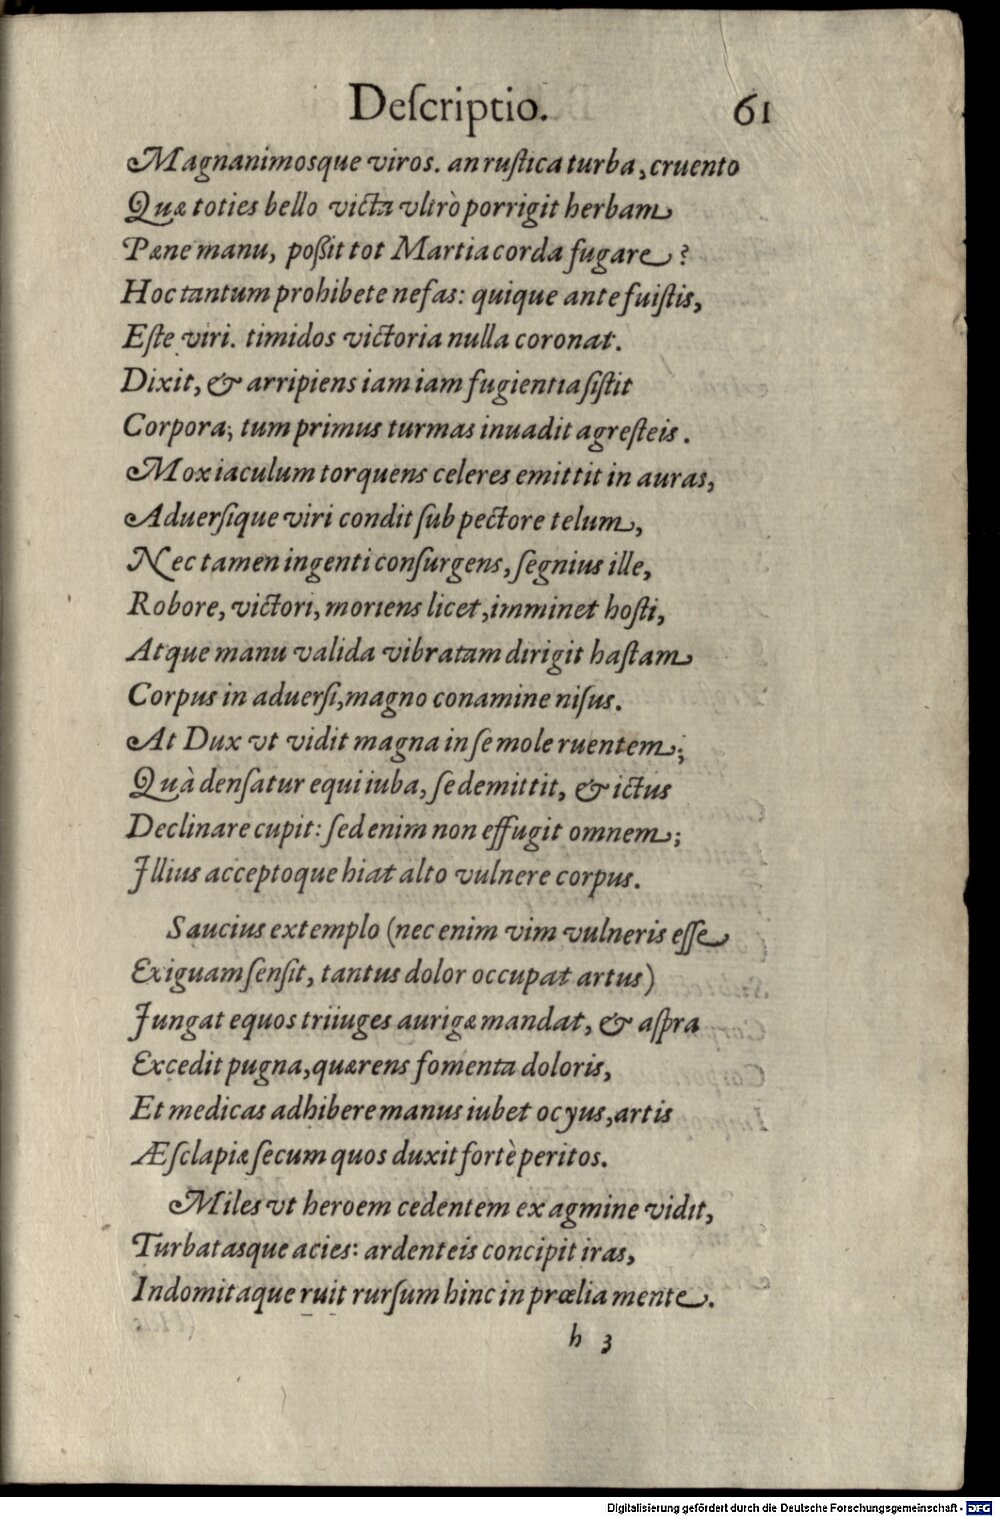 Deſcriptio. 61
Magnanimosque viros. an ruſtica turba, cruento
Quæ toties bello victa vltrò porrigit herbam
Pæne manu, poßit tot Martia corda fugare?
Hoc tantum prohibete nefas: quique ante fuiſtis,
Eſte viri. timidos victoria nulla coronat.
Dixit, & arripiens iam iam fugientia ſiſtit
Corpora; tum primus turmas inuadit agreſteis.
Mox iaculum torquens celeres emittit in auras,
Aduerſique viri condit ſub pectore telum,
Nec tamen ingenti conſurgens, ſegnius ille,
Robore, victori, moriens licet, imminet hoſti,
Atque manu valida vibratam dirigit haſtam
Corpus in aduerſi, magno conamine niſus.
At Dux vt vidit magna in ſe mole ruentem;
Quà denſatur equi iuba, ſe demittit, & ictus
Declinare cupit: ſed enim non effugit omnem;
Illius acceptoque hiat alto vulnere corpus.
Saucius extemplo (nec enim vim vulneris eſſe
Exiguam ſenſit, tantus dolor occupat artus)
Jungat equos triiuges aurigæ mandat, & aſpra
Excedit pugna, quærens fomenta doloris,
Et medicas adhibere manus iubet ocyus, artis
Æſclapiæ ſecum quos duxit fortè peritos.
Miles vt heroem cedentem ex agmine vidit,
Turbatasque acies: ardenteis concipit iras,
Indomitaque ruit rurſum hinc in prœlia mente.
h 3
Digitalisierung gefördert durch die Deutsche Forschungsgemeinschaft - DFG